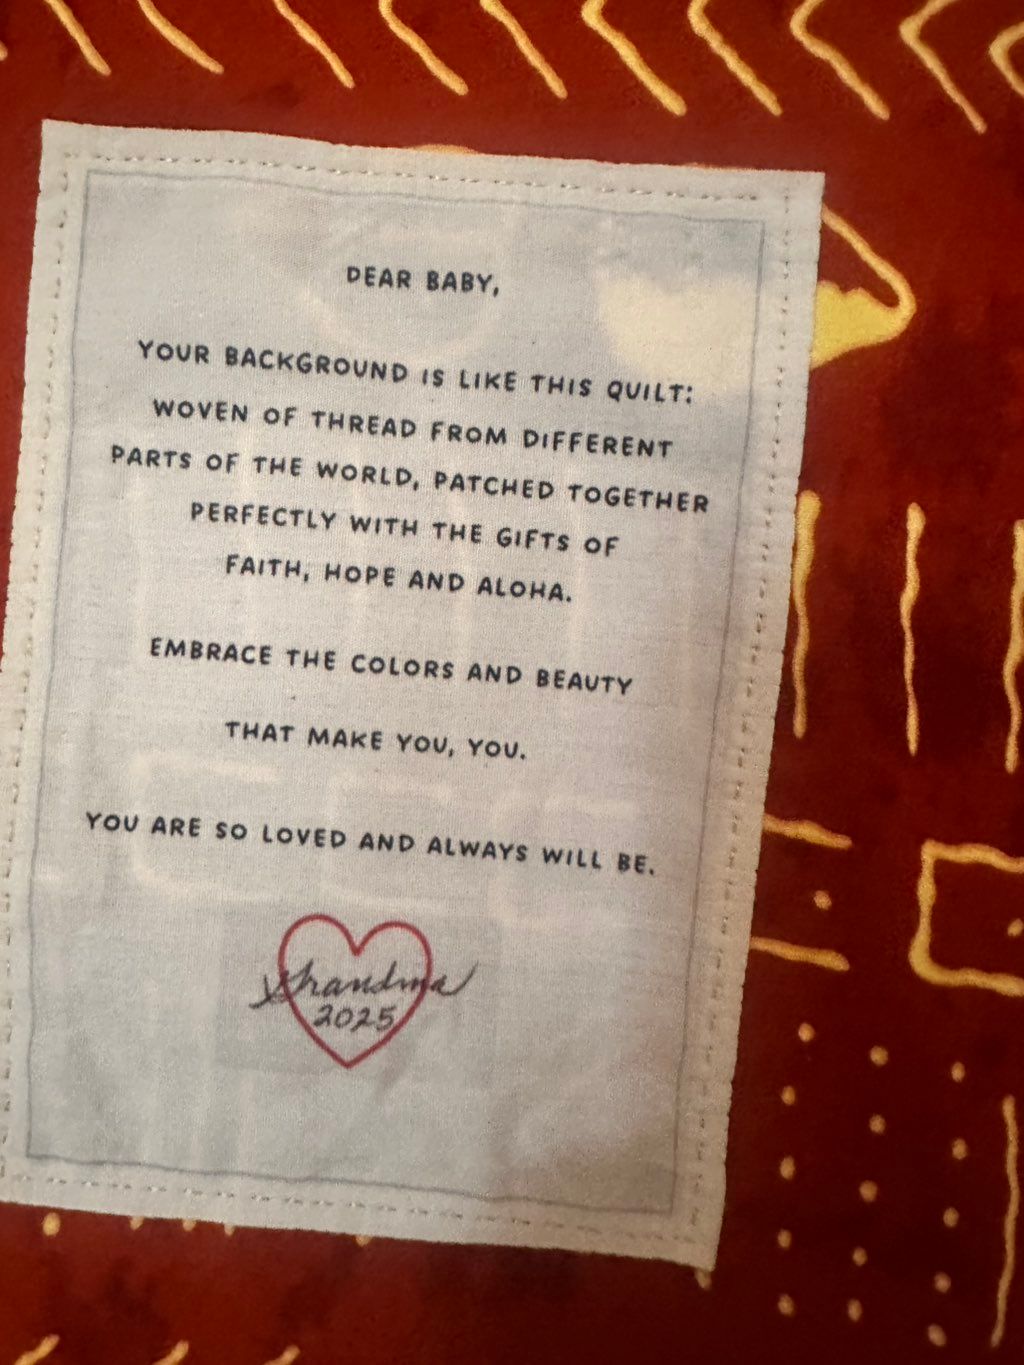 DEAR BABY,
YOUR BACKGROUND IS LIKE THIS QUILT:
WOVEN OF THREAD FROM DIFFERENT
PARTS OF THE WORLD, PATCHED TOGETHER
PERFECTLY WITH THE GIFTS OF
FAITH, HOPE AND ALOHA.
EMBRACE THE COLORS AND BEAUTY
THAT MAKE YOU, YOU.
YOU ARE SO LOVED AND ALWAYS WILL BE.
Grandma
2025